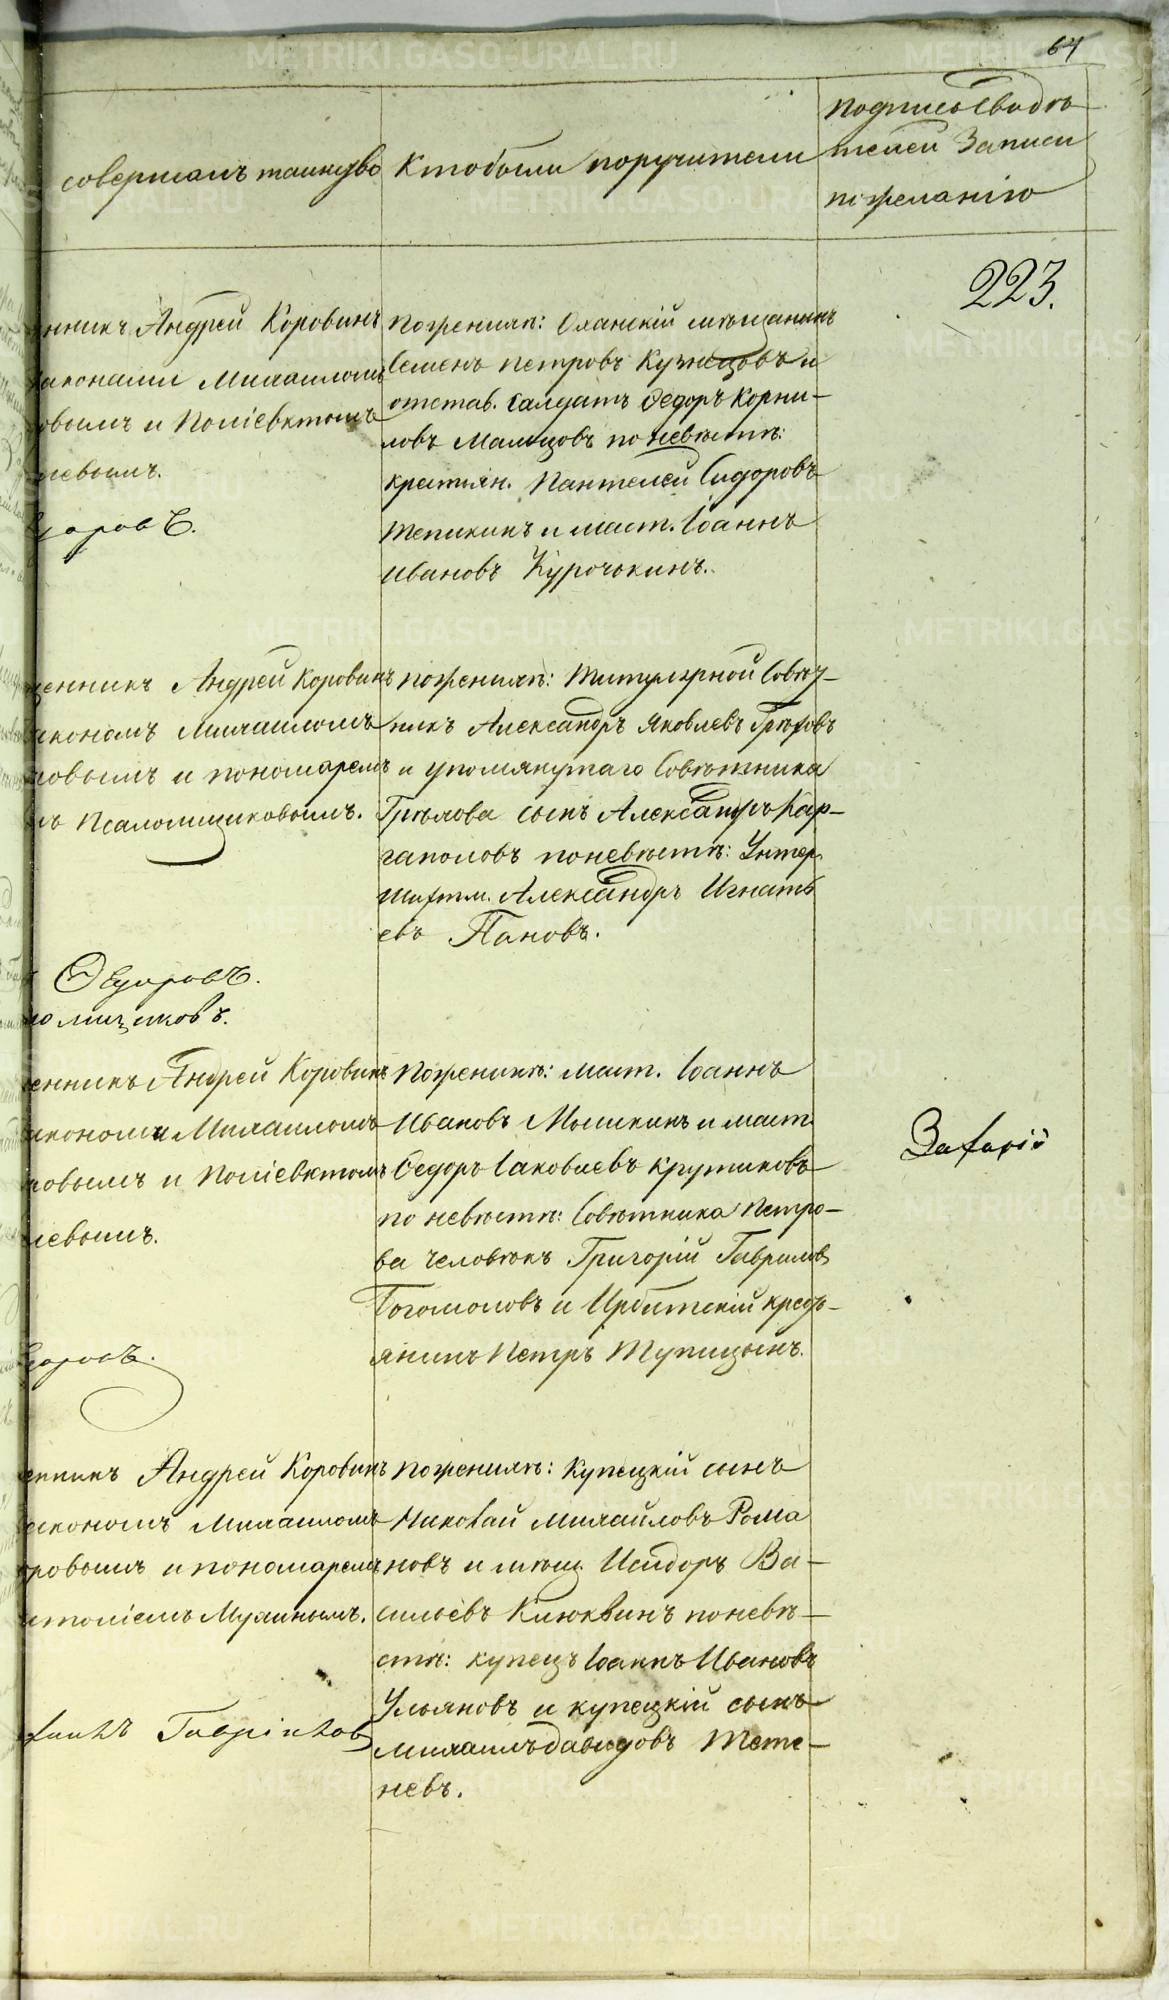 64
совершалъ таинство
Кто были поручители
подпись Свидѣ
телей Записи
по желанію
223.
нникъ Андрей Коровинъ
іаконами Михаиломъ
овымъ и Поліевктомъ
левымъ.
доровъ.
по женихѣ: Оханскій мѣщанинъ
Семенъ Петровъ Кузнецовъ и
отстав. Салдатъ Ѳедоръ Корни-
ловъ Мальцовъ по невѣстѣ:
крестьян. Пантелей Сидоровъ
Тепикинъ и маст. Іоаннъ
Ивановъ Курочькинъ.
щенникъ Андрей Коровинъ
іакономъ Михаиломъ
ровымъ и пономаремъ
ъ Псаломщиковымъ.
Ѳедоровъ.
ломщиковъ.
по женихѣ: Титулярной Совѣт-
никъ Александръ Яковлевъ Грѣховъ
и упомянутаго Совѣтника
Грѣхова сынъ Александръ Кар-
гаполовъ по невѣстѣ: Унтер.
шихтм. Александръ Игнать
евъ Пановъ.
енникъ Андрей Коровинъ
іакономъ Михаиломъ
ровымъ и Поліевктомъ
левымъ.
доровъ.
По женихѣ: маст. Іоаннъ
Ивановъ Мышкинъ и маст.
Ѳедоръ Іаковлевъ Крутиковъ
по невѣстѣ: Совѣтника Петро-
ва человѣкъ Григорій Гавриловъ
Богомоловъ и Ирбитскій кресть-
янинъ Петръ Тупицынъ.
Захарій
енникъ Андрей Коровинъ
іакономъ Михаиломъ
ровымъ и пономаремъ
толіемъ Мухинымъ.
Гавриловъ
по женихѣ: Купецкій сынъ
Николай Михайловъ Рома
новъ и мѣщ. Исидоръ Ва-
сильевъ Клюквинъ по невѣ-
стѣ: купецъ Іоаннъ Ивановъ
Ульяновъ и купецкій сынъ
Михаилъ Давидовъ Тете-
невъ.